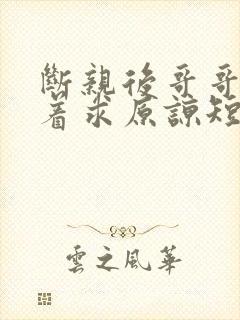 斷親後哥哥
着求原諒短
雲之風華